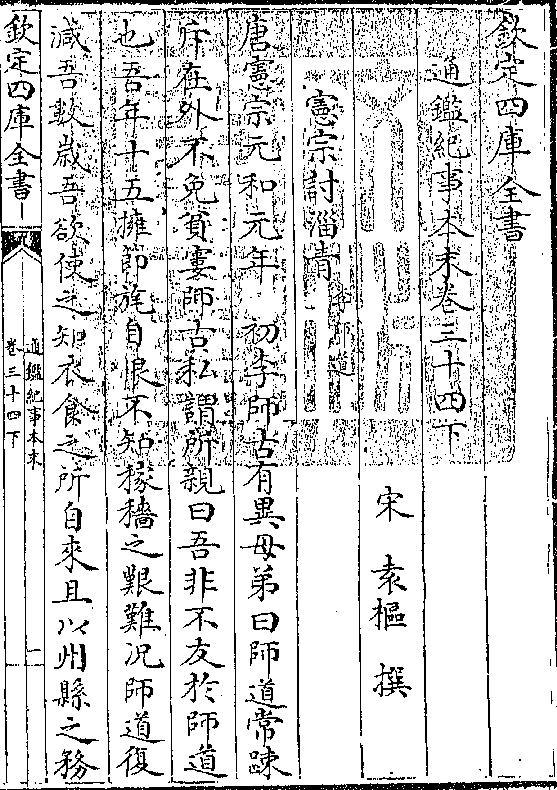 欽定四庫全書
通鑑紀事本末卷三十四下
宋 袁樞 撰
憲宗討淄青 李師道
唐憲宗元和元年 初李師古有異母弟曰師道常踈
斥在外不免貧窶師古私謂所親曰吾非不友於師道
也吾年十五擁節旄自恨不知稼穡之艱難况師道復
減吾數歳吾欲使之知衣食之所自來且以州縣之務
欽定四庫全書
通鑑紀事本末
卷三十四下
一